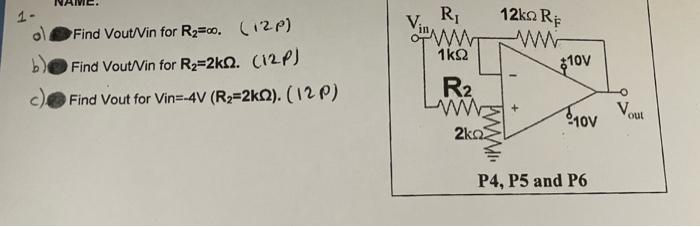 NAME:
1-
a) Find Vout/Vin for R₂=∞. (12P)
b) Find Vout/Vin for R₂=2kΩ. (12P)
c) Find Vout for Vin=-4V (R₂=2kΩ). (12P)
Vin R₁ 12kΩ R_F
1kΩ
+10V
R₂
-
+
Vout
-10V
2kΩ
P4, P5 and P6